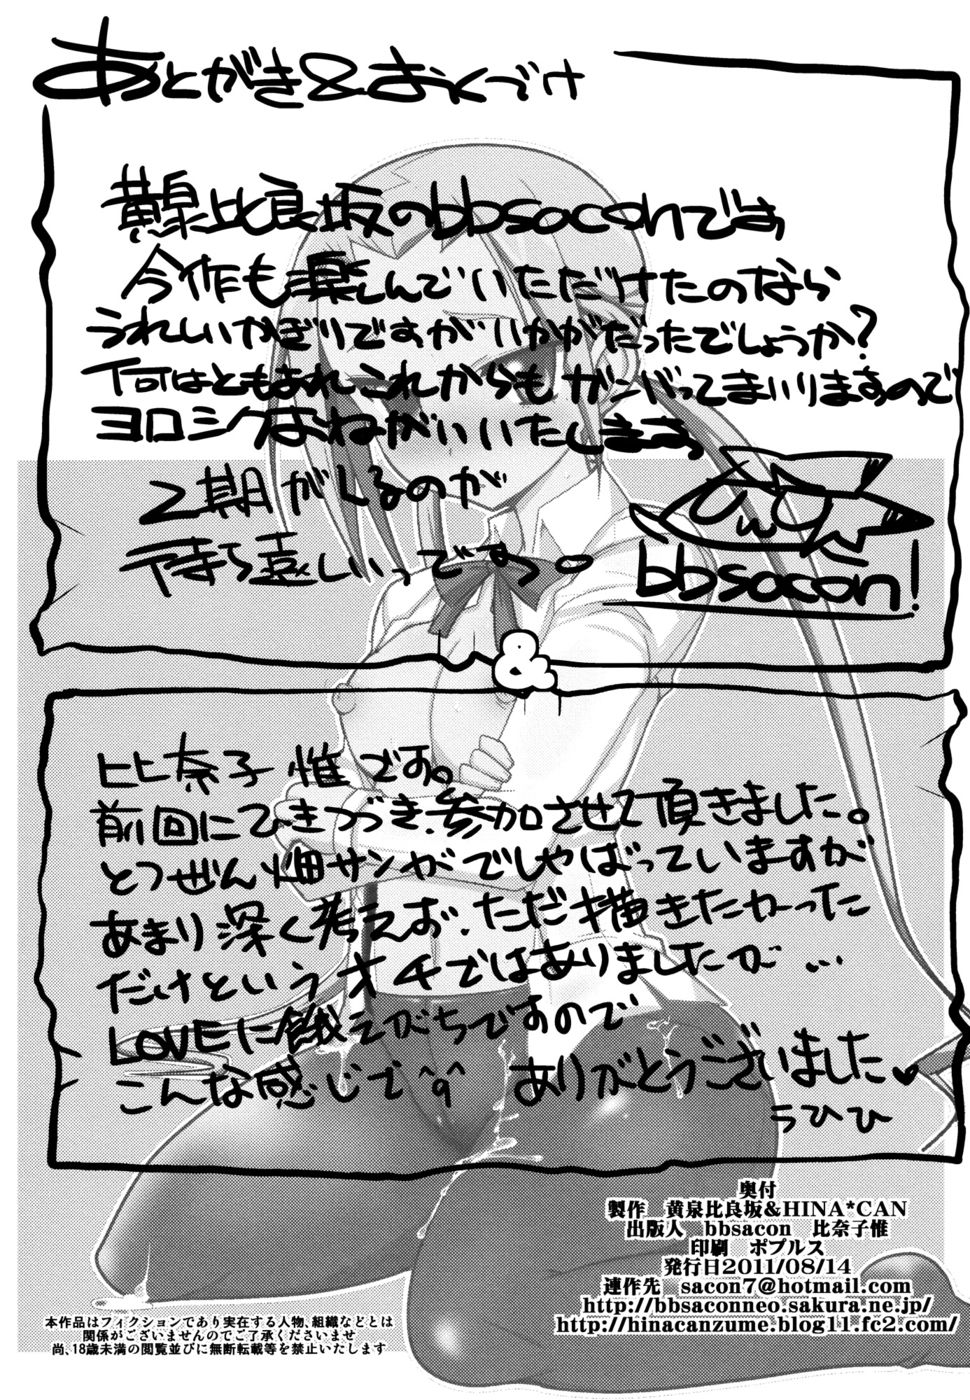 あとがき&おくづけ
黄泉比良坂のbbsaconです
今作も楽しんでいただけたのなら
うれしいかぎりですがいかがだったでしょうか?
何はともあれこれからもガンバってまいりますので
ヨロシクおねがいいたします
2期がくるのが
待ち遠しいっですぅ。
bbsacon!
&
比奈子惟です。
前回にひきつづき、参加させて頂きました。
とつぜん畑サンがでしゃばっていますが
あまり深く考えお、ただ描きたかった
だけというオチではありましたが…
LOVEに餓えがちですので
こんな感じで^q^ ありがとうございました♥
うひひ
奥付
製作 黄泉比良坂&HINA*CAN
出版人 bbsacon 比奈子惟
印刷 ポプルス
発行日2011/08/14
連作先 sacon7@hotmail.com
http://bbsaconneo.sakura.ne.jp/
http://hinacanzume.blog11.fc2.com/
本作品はフィクションであり実在する人物、組織などとは
関係がございませんのでご了承くださいませ
尚、18歳未満の閲覧並びに無断転載等を禁止いたします